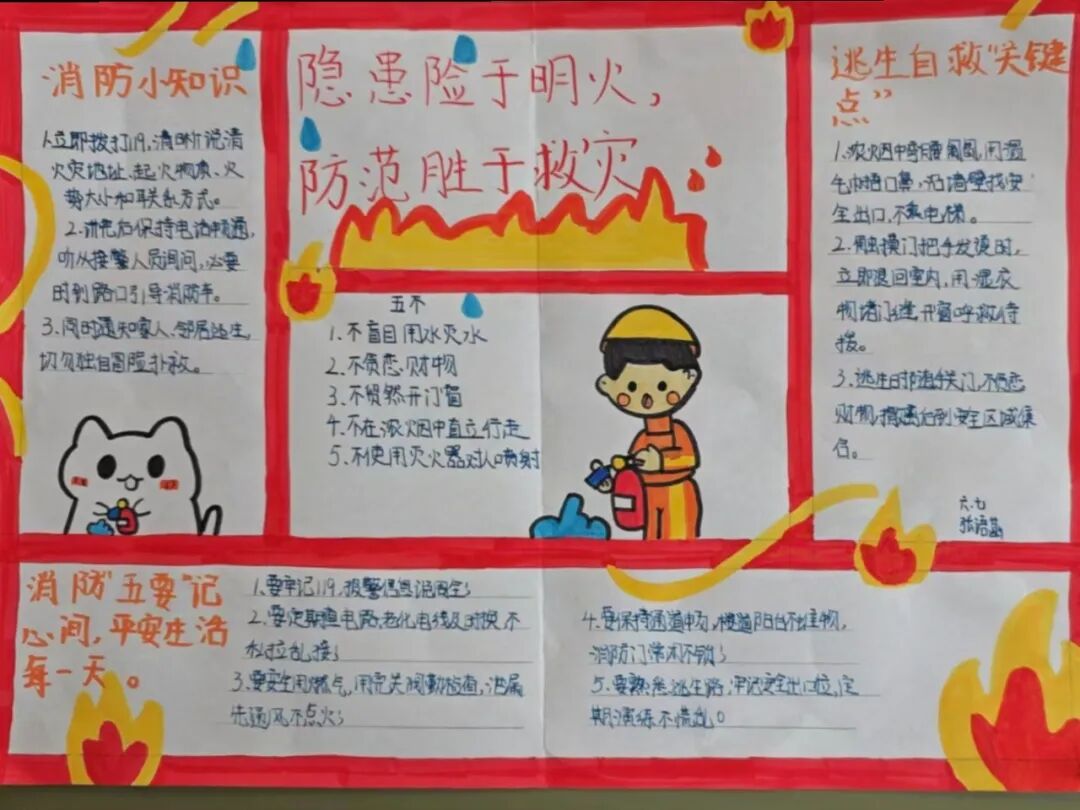 消防小知识
1.立即拨打119,清晰说清
火灾地址、起火物质、火
势大小和联系方式。
2.讲完后保持电话畅通,
听从接警人员询问,必要
时到路口引导消防车。
3.同时通知家人、邻居逃生,
切勿独自冒险扑救。
隐患险于明火,
防范胜于救灾
五不
1.不盲目用水灭水
2.不贪恋财物
3.不贸然开门窗
4.不在浓烟中直立行走
5.不使用灭火器对人喷射
逃生自救“关键
点”
1.浓烟中弯腰匍匐,用湿
毛巾捂口鼻,沿墙壁找安
全出口,不乘电梯。
2.摸门把手发烫时,
立即退回室内,用湿衣
物堵门缝,开窗呼救待
援。
3.逃生时随手关门,不贪恋
财物,撤离后到安全区域集
合。
六.七
消防“五要”记
心间,平安生活
每一天。
1.要牢记119,报警信息说周全;
2.要定期查电路,老化电线及时换,不
私拉乱接;
3.要安全用燃气,用完关阀勤检查,泄漏
先通风不点火;
4.要保持通道畅,楼道阳台不堆物,
消防门常闭不锁;
5.要熟悉逃生路,牢记安全出口位,定
期演练不慌乱。